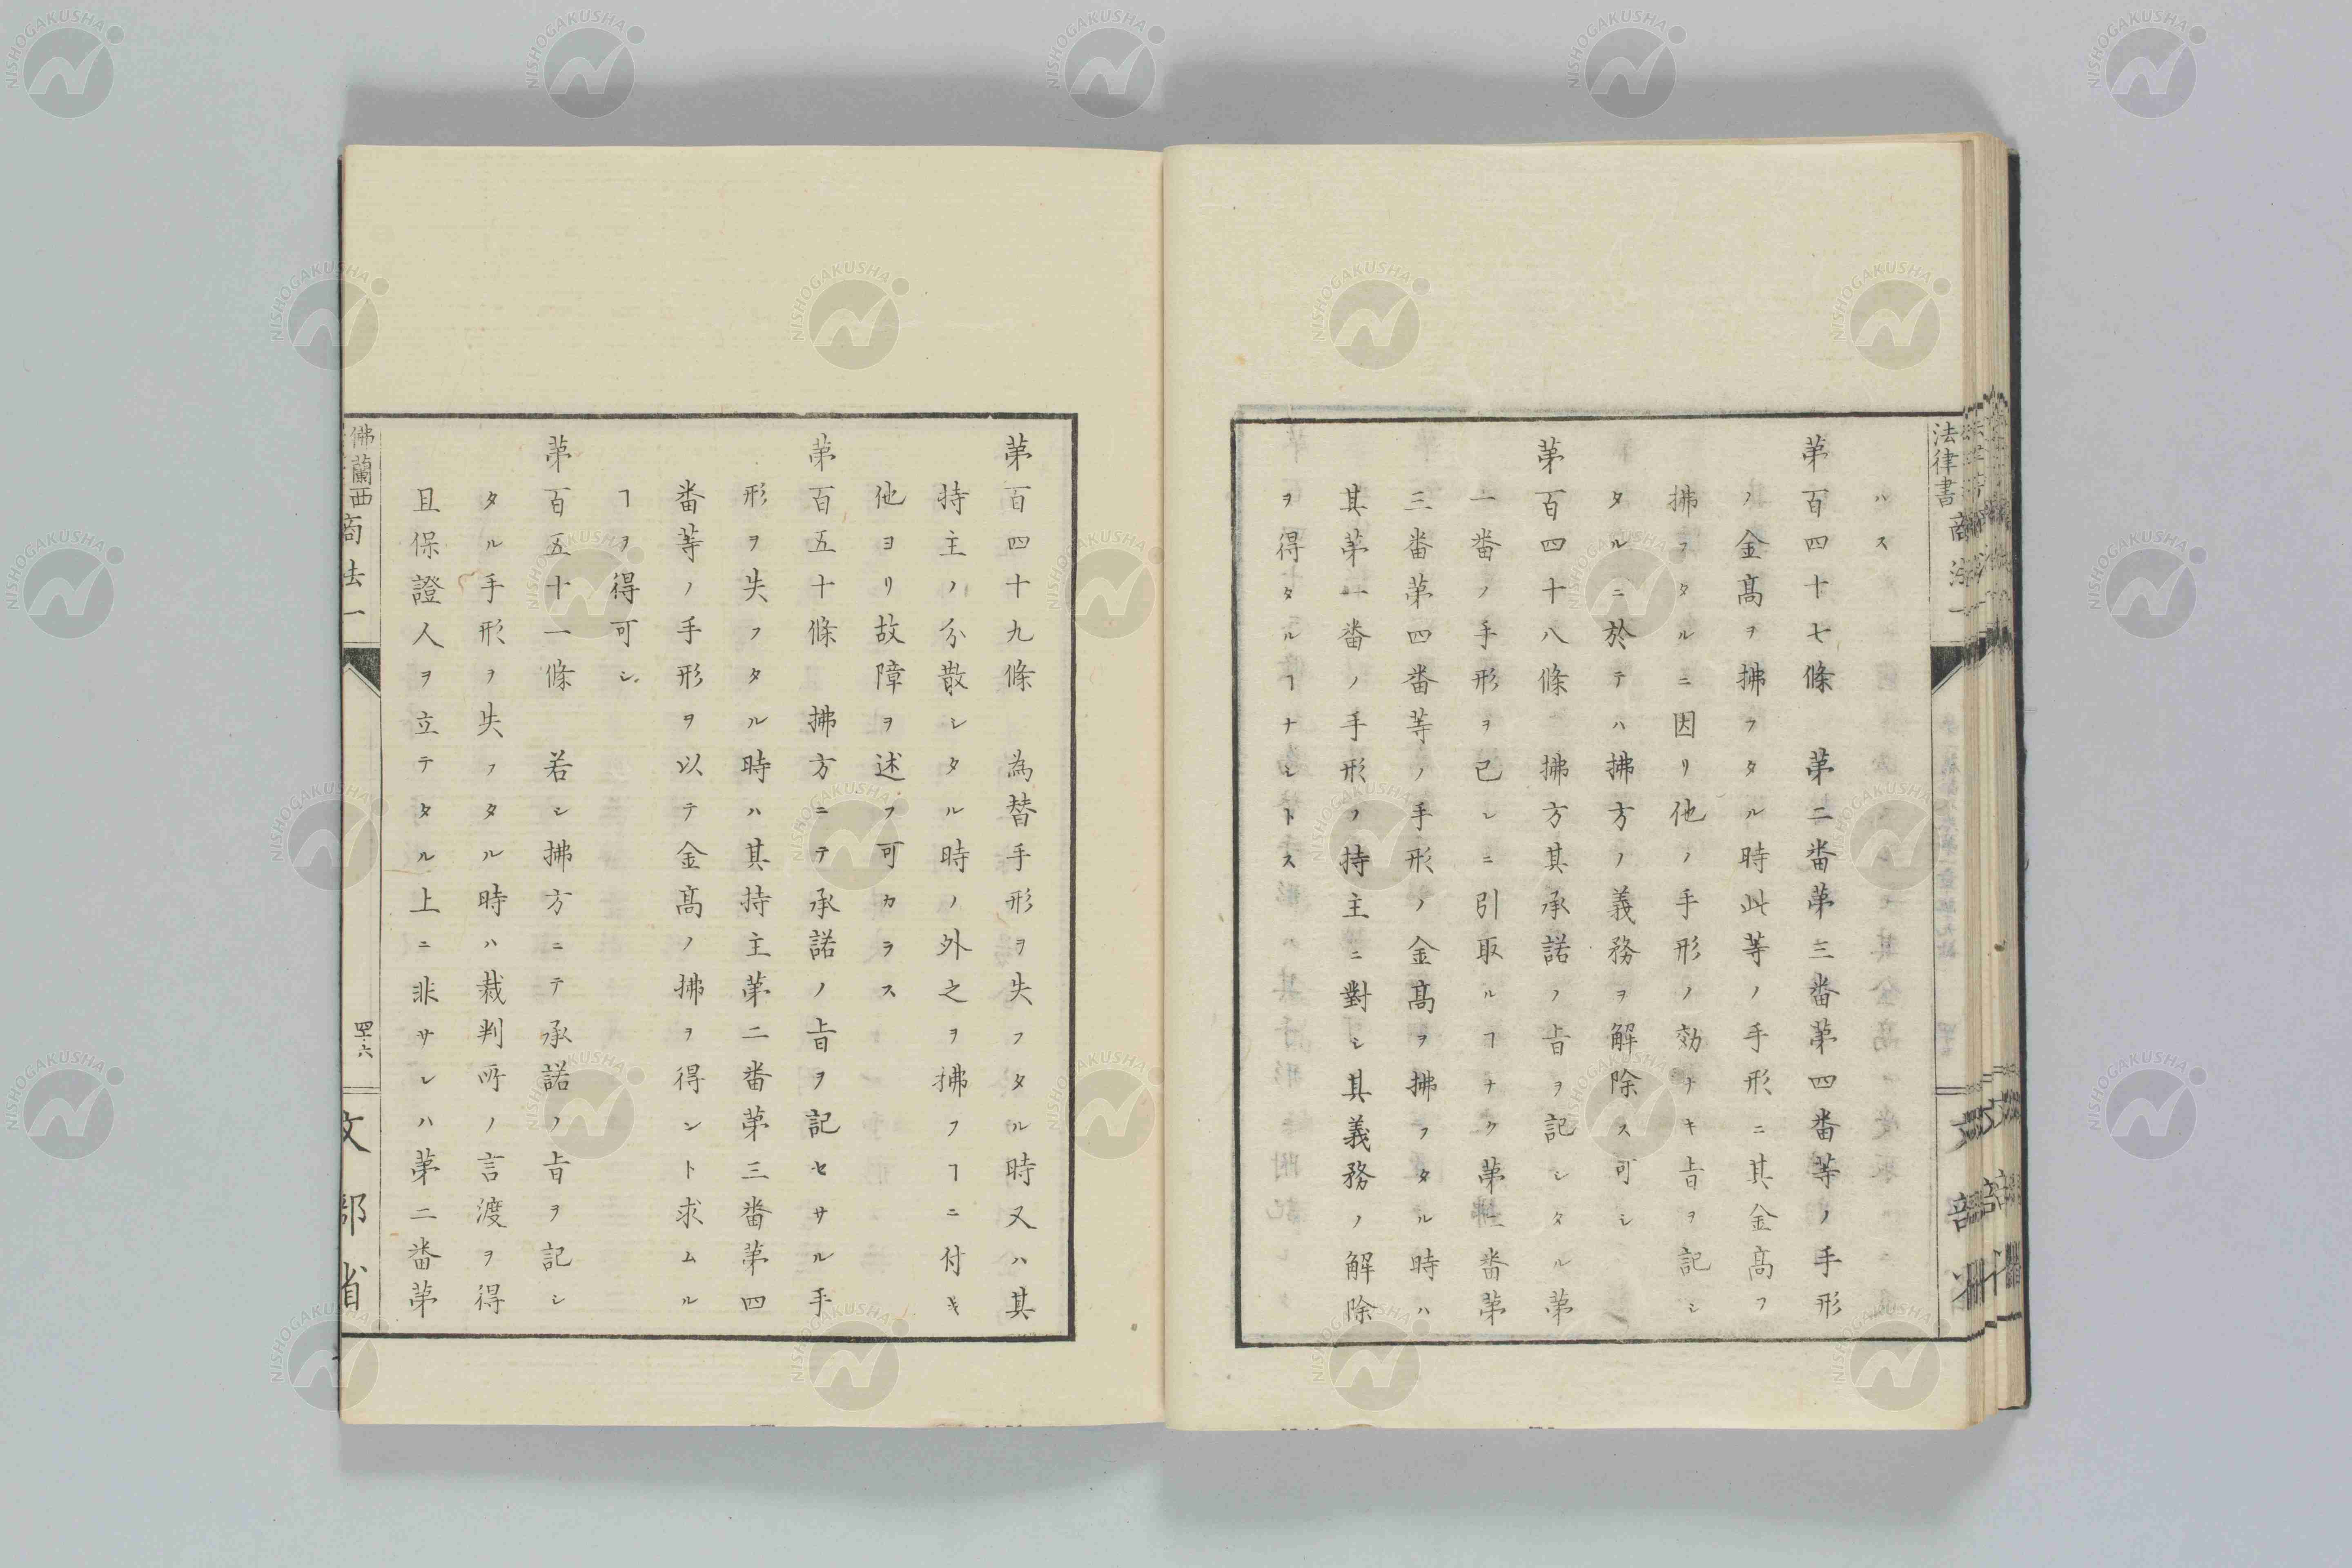 法律書 商法一
ハス
第百四十七條 第二番第三番第四番等ノ手形
ノ金髙ヲ拂フタル時此等ノ手形ニ其金髙フ
拂フタルニ因リ他ノ手形ノ効ナキ旨ヲ記シ
タルニ於テハ拂方ノ義務ヲ解除ス可シ
第百四十八條 拂方其承諾ノ旨ヲ記シタル第
一番ノ手形ヲ已レニ引取ルヿナク第二番第
三番第四番等ノ手形ノ金髙ヲ拂フタル時ハ
其第一番ノ手形ノ持主ニ對シ其義務ノ解除
ヲ得タルヿナシトス
第百四十九條 為替手形ヲ失フタル時又ハ其
持主ノ分散シタル時ノ外之ヲ拂フヿニ付キ
他ヨリ故障ヲ述フ可カラス
第百五十條 拂方ニテ承諾ノ旨ヲ記セサル手
形ヲ失フタル時ハ其持主第二番第三番第四
番等ノ手形ヲ以テ金髙ノ拂ヲ得ント求ムル
ヿヲ得可シ
第百五十一條 若シ拂方ニテ承諾ノ旨ヲ記シ
タル手形ヲ失フタル時ハ裁判所ノ言渡ヲ得
且保證人ヲ立テタル上ニ非サレハ第二番第
佛蘭西商法一 四十六 文部省
NISHOGAKUSHA